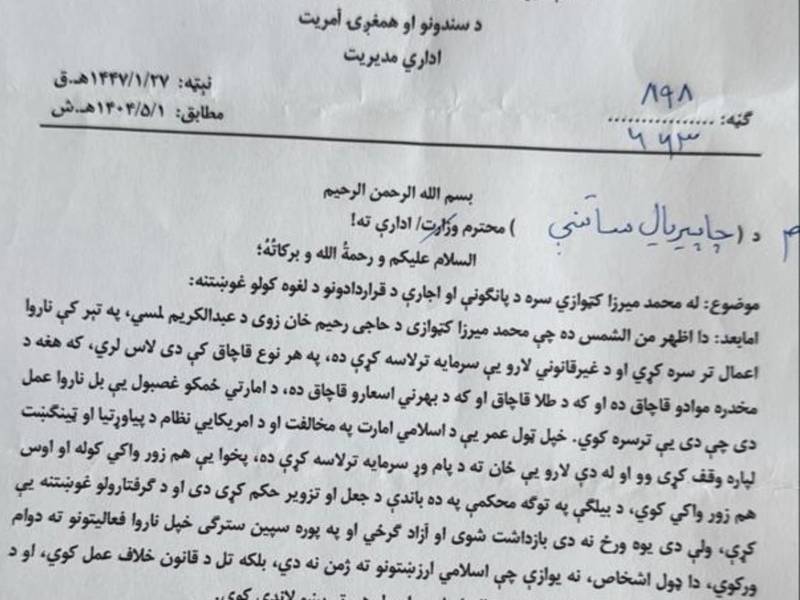 د سندونو او همغږۍ آمریت
اداري مدیریت
نېټه: ۱۴۴۷/۱/۲۷هـ.ق
مطابق: ۱۴۰۴/۵/۱هـ.ش
ګڼه: ................
۸۹۸
۶۶۳
بسم الله الرحمن الرحیم
د (چاپیریال ساتنې) محترم وزارت/ ادارې ته!
السلام علیکم و رحمةُ الله و برکاتُهُ؛
موضوع: له محمد میرزا کټوازي سره د پانګونې او اجارې د قراردادونو د لغوه کولو غوښتنه:
امابعد: دا اظهر من الشمس ده چې محمد میرزا کټوازی د حاجی رحیم خان زوی د عبدالکریم لمسي، په تېر کې ناروا
اعمال تر سره کړي او د غیرقانوني لارو یې سرمایه ترلاسه کړې ده، په هر نوع قاچاق کې دی لاس لري، که هغه د
مخدره موادو قاچاق ده او که د طلا قاچاق او که د بهرني اسعارو قاچاق ده، د امارتي ځمکو غصبول یې بل ناروا عمل
دی چې دی یې ترسره کوي. خپل ټول عمر یې د اسلامي امارت په مخالفت او د امریکایي نظام د پیاوړتیا او ټینګښت
لپاره وقف کړی وو او له دې لارو یې خان ته د پام وړ سرمایه ترلاسه کړې ده، پخوا یې هم زور واکي کوله او اوس
هم زور واکي کوي، د بیلګې په توګه محکمې په ده باندې د جعل او تزویر حکم کړی دی او د ګرفتارولو غوښتنه یې
کړې، ولې دی یوه ورځ نه دی بازداشت شوی او آزاد ګرځي او په پوره سپین سترګی خپل ناروا فعالیتونو ته دوام
ورکوي، دا ډول اشخاص، نه یوازې چې اسلامي ارزښتونو ته ژمن نه دي، بلکه تل د قانون خلاف عمل کوي، او د